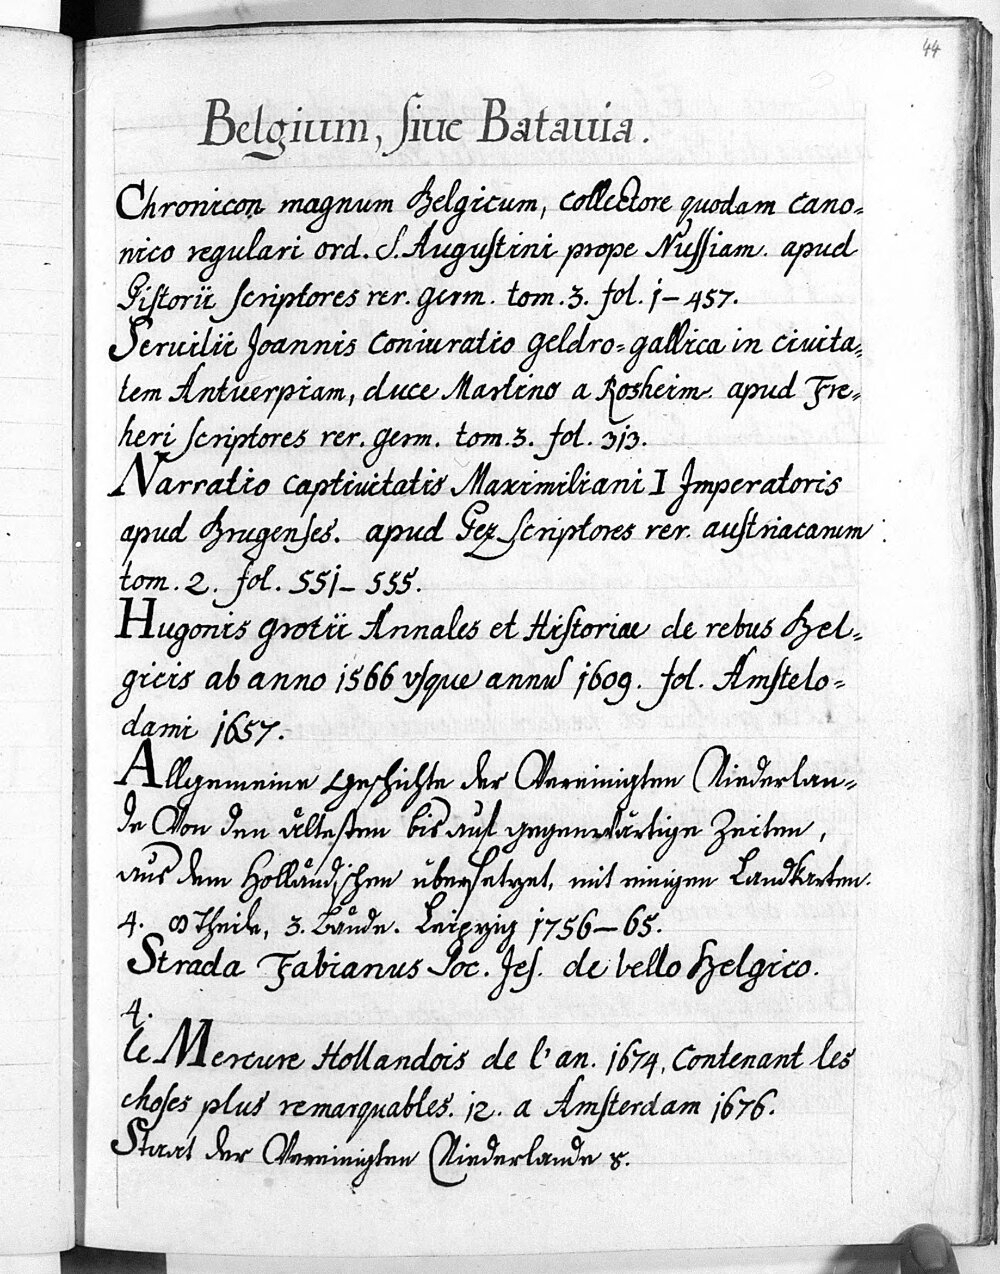 44
Belgium, ſiue Batauia.
Chronicon magnum Belgicum, collectore quodam cano-
nico regulari ord. S. Auguſtini prope Nuſſiam. apud
Piſtorii ſcriptores rer. germ. tom. 3. fol. 1-457.
Seruilii Joannis Coniuratio geldro-gallica in ciuita-
tem Antuerpiam, duce Martino a Rosheim. apud Fre-
heri ſcriptores rer. germ. tom. 3. fol. 313.
Narratio captiuitatis Maximiliani I Imperatoris
apud Brugenſes. apud Pez Scriptores rer. auſtriacarum
tom. 2. fol. 551-555.
Hugonis grotii Annales et Hiſtoriae de rebus Bel-
gicis ab anno 1566 vſque annũ 1609. fol. Amſtelo-
dami 1657.
Allgemeine Geſchichte der Vereinigten Niederlan-
de Von den älteſten bis auf gegenwärtige Zeiten,
aus dem Holländiſchen überſetzet, mit einigen Landkarten.
4. 8 Theile, 3. Bände. Leipzig 1756-65.
Strada Fabianus Soc. Jeſ. de bello Belgico.
4.
le Mercure Hollandois de l'an. 1674, contenant les
choſes plus remarquables. 12. a Amſterdam 1676.
Staat der Vereinigten Niederlande 8.